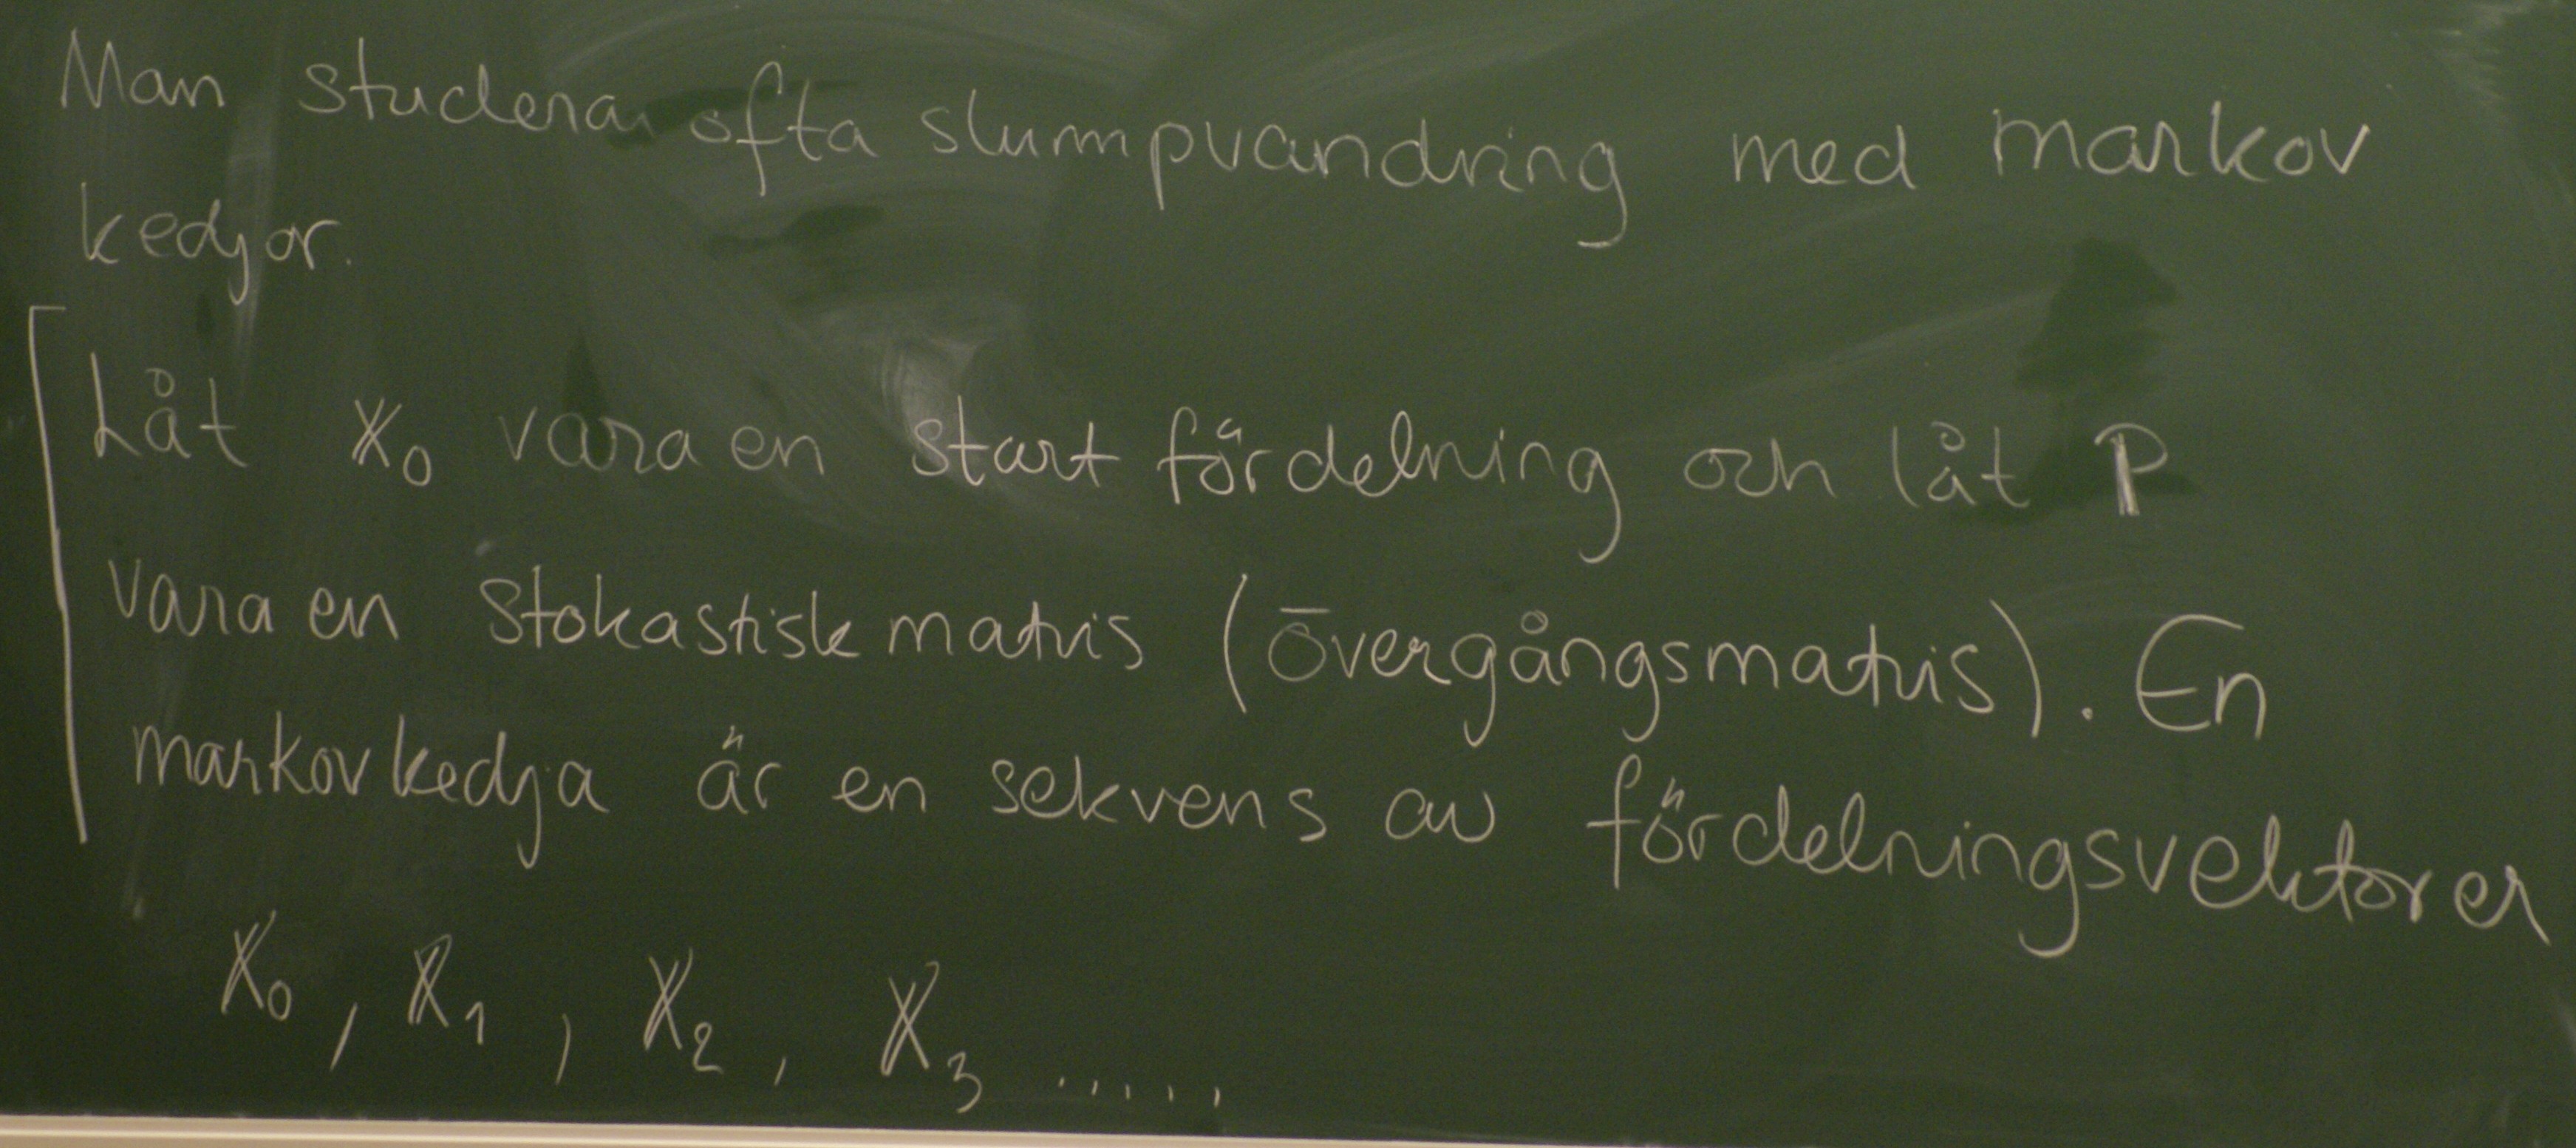 Man studerar ofta slumpvandring med markov
kedjor.
Låt 𝕏₀ vara en start fördelning och låt P
vara en stokastisk matris (övergångsmatris). En
markovkedja är en sekvens av fördelningsvektorer
𝕏₀, 𝕏₁, 𝕏₂, 𝕏₃ .....